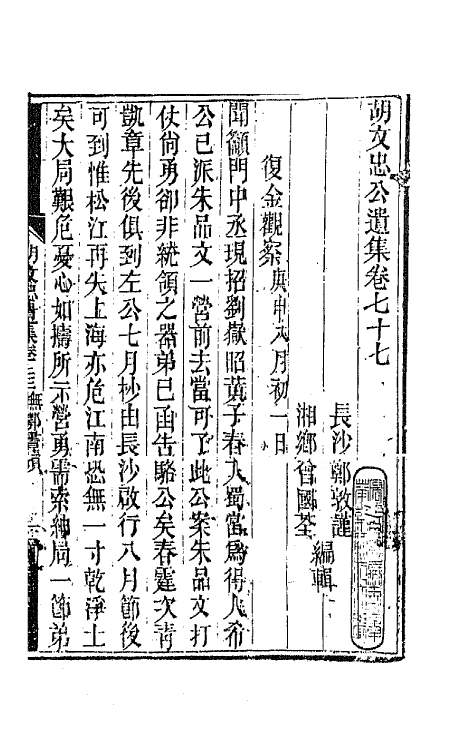 胡文忠公遺集卷七十七
長沙鄭敦謹
湘鄉曾國荃
編輯
復金觀察庚申八月初一日
聞籲門中丞現招劉嶽昭黃子春入蜀當為得人希
公已派朱品文一營前去當可了此公案朱品文打
仗尚勇卻非統領之器弟已函告駱公矣春霆次青
凱章先後俱到左公七月杪由長沙啟行八月節後
可到惟松江再失上海亦危江南恐無一寸乾淨土
矣大局艱危憂心如擣所示營勇需索紳局一節弟